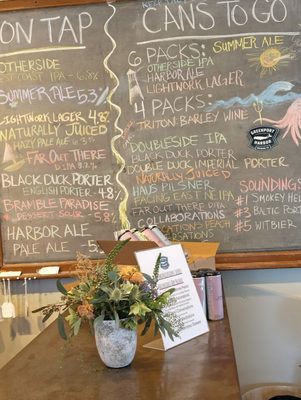 ON TAP
OTHERSIDE
WEST COAST IPA - 6.8%
SUMMER ALE 5.3%
LIGHTWORK LAGER 4.8%
NATURALLY JUICED
HAZY PALE ALE 6.5%
FAR OUT THERE
BLACK DUCK PORTER
ENGLISH PORTER 4.8%
BRAMBLE PARADISE
DESSERT SOUR 5.8%
HARBOR ALE
PALE ALE 5%
CANS TO GO
6 PACKS: SUMMER ALE
OTHERSIDE IPA
HARBOR ALE
LIGHTWORK LAGER
4 PACKS:
TRITON BARLEY WINE
DOUBLESIDE IPA
BLACK DUCK PORTER
DOUBLE DUCK IMPERIAL PORTER
NATURALLY JUICED
HAUS PILSNER
FADING EAST NE IPA
FAR OUT THERE
COLLABORATIONS
SOUNDINGS
#1 SMOKEY
#3 BALTIC
#5 WITBIER
GREENPORT
HARBOR